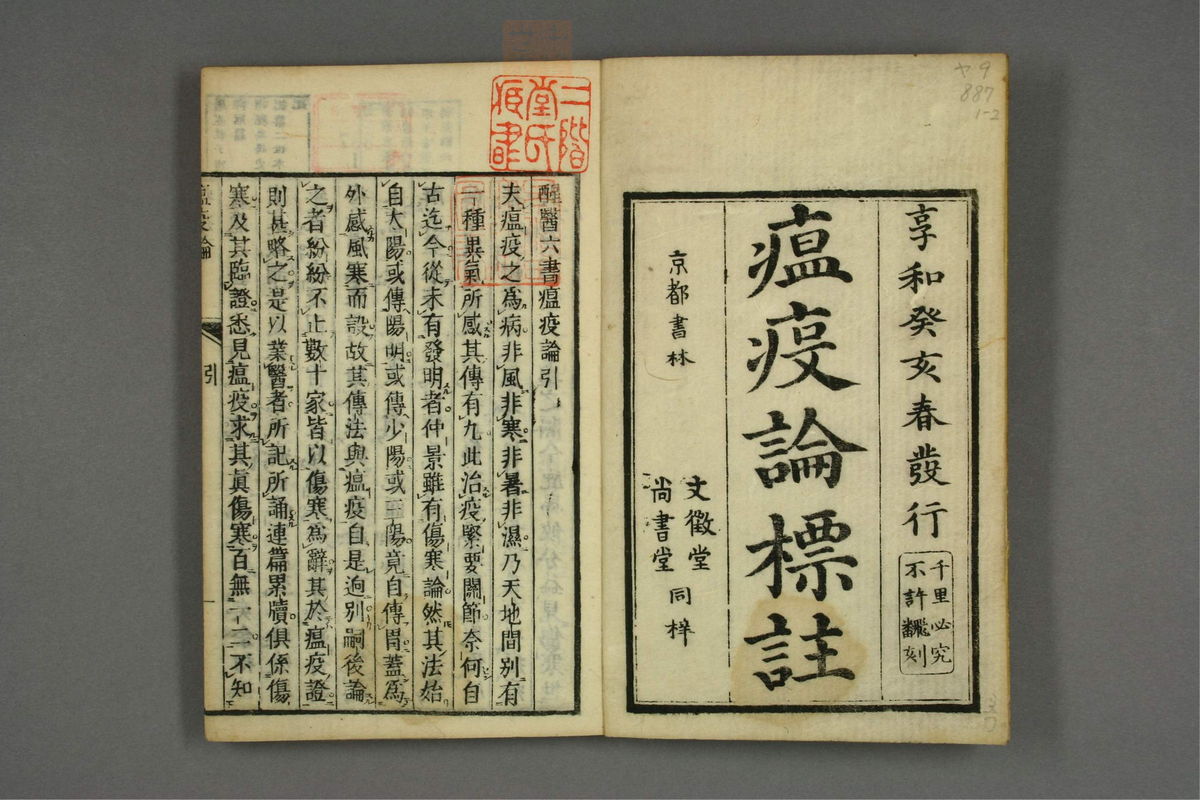 ヤ9
887
1-2
享和癸亥春發行
千里必究
不許翻刻
瘟疫論標註
文徵堂
尚書堂
同梓
京都書林
二階
堂氏
醒醫六書瘟疫論引
夫瘟疫之爲病非風非寒非暑非濕乃天地間別有
一種異氣所感其傳有九此治疫緊要關節奈何自
古迄今從未有發明者仲景雖有傷寒論然其法始
自太陽或傳陽明或傳少陽或三陽竟自傳胃蓋爲
外感風寒而設故其傳法與瘟疫自是逈別嗣後論
之者紛紛不止數十家皆以傷寒爲辭其於瘟疫證
則甚略之是以業醫者所記所誦連篇累牘俱係傷
寒及其臨證悉見瘟疫求其眞傷寒百無一二不知
瘟疫論
引
一